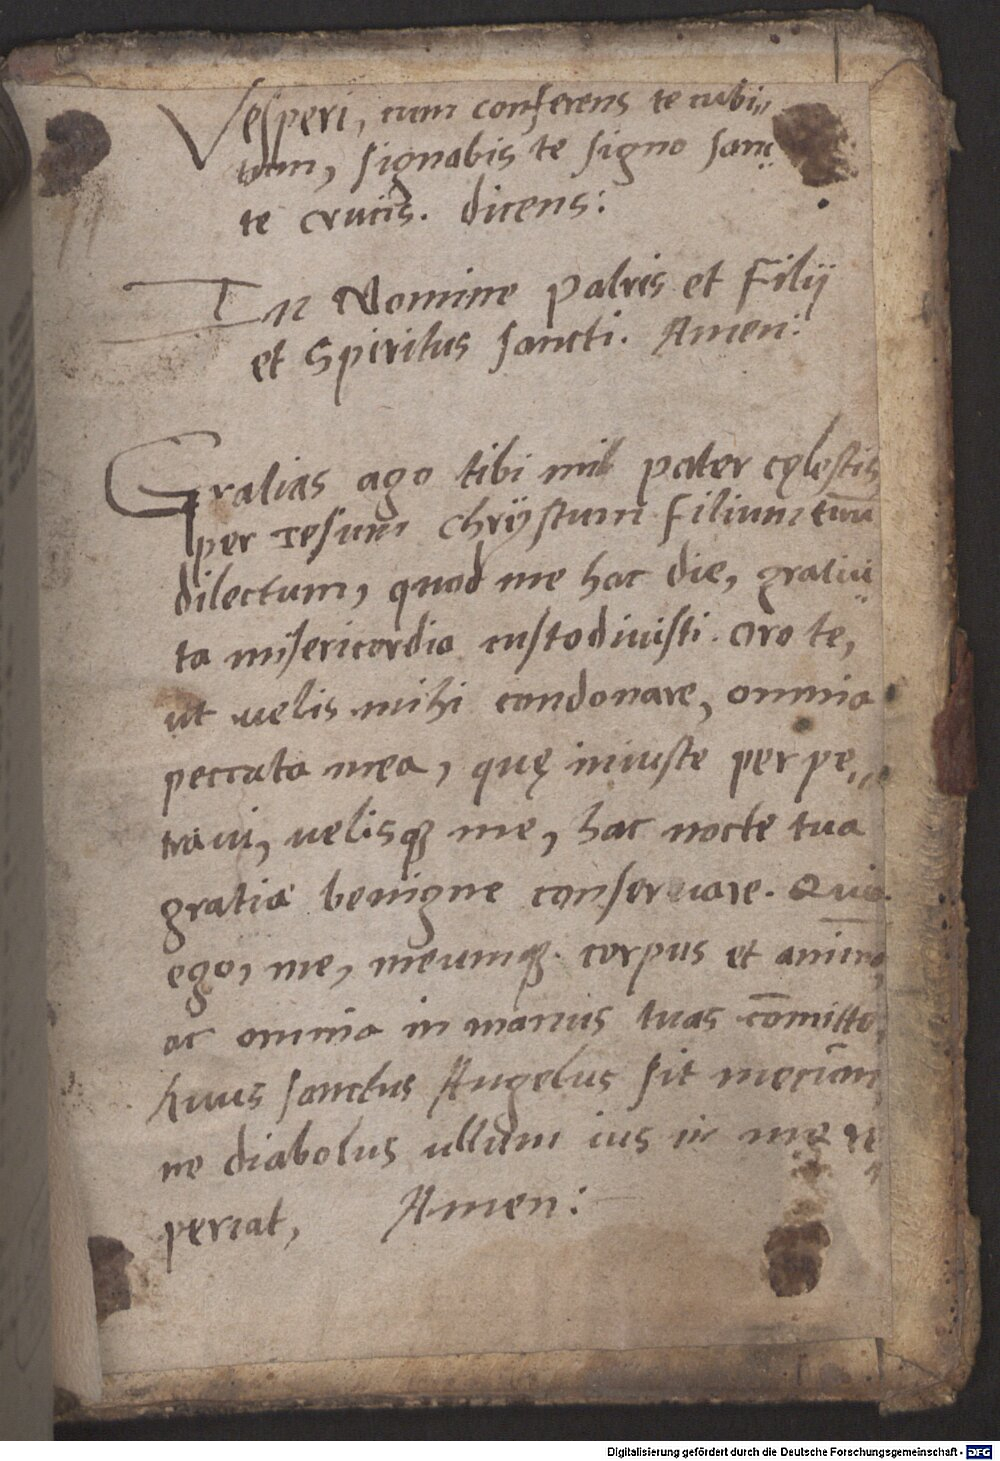 Vesperi, cum conferens te cubi„
tum, signabis te signo sanc„
te crucis. dicens:
In Nomine Patris et Filij
et Spiritus sancti. Amen:
Gratias ago tibi mi pater cęlestis
per Iesum Chrÿstum Filium tuū
dilectum, quod me hac die, gratui„
ta misericordia custodiuisti. oro te,
ut uelis mihi condonare, omnia
peccata mea, quę iniuste perpe„
traui, uelisqꝫ me, hac nocte tua
gratia benigne conseruare. Quia
ego, me, meumqꝫ corpus et animā,
ac omnia in manus tuas cōmitto,
tuus sanctus Angelus sit mecū,
ne diabolus ullum ius in me re„
periat, Amen:
Digitalisierung gefördert durch die Deutsche Forschungsgemeinschaft - DFG